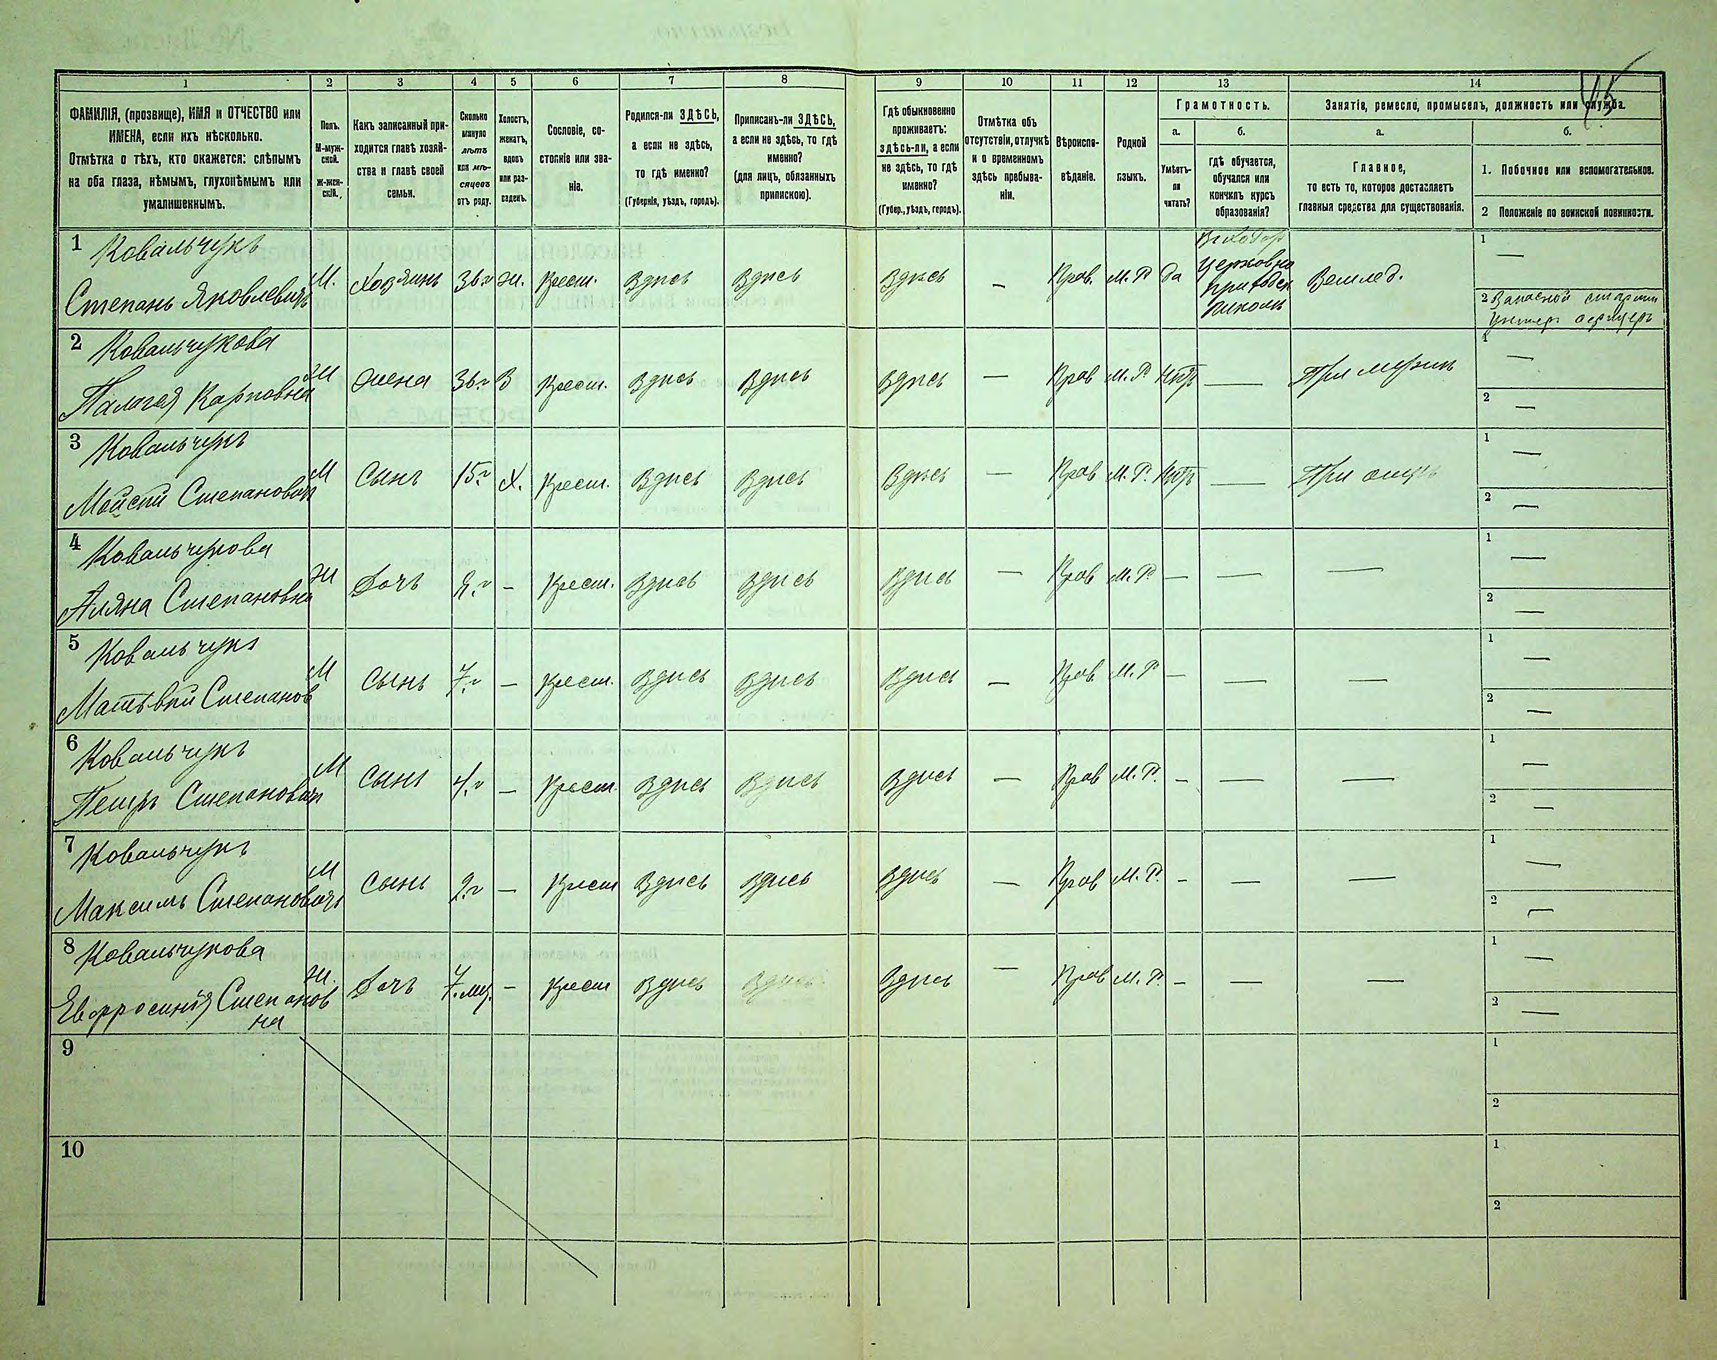 15
1 2 3 4 5 6 7 8 9 10 11 12 13 14
ФАМИЛІЯ, (прозвище), ИМЯ и ОТЧЕСТВО или
ИМЕНА, если ихъ нѣсколько.
Отмѣтка о тѣхъ, кто окажется: слѣпымъ
на оба глаза, нѣмымъ, глухонѣмымъ или
умалишеннымъ.
Полъ.
М-муж-
ской.
Ж-жен-
скій.
Какъ записанный при-
ходится главѣ хозяй-
ства и главѣ своей
семьи.
Сколько
минуло
лѣтъ
или мѣ-
сяцевъ
отъ роду.
Холостъ,
женатъ,
вдовъ
или раз-
веденъ.
Сословіе, со-
стояніе или зва-
ніе.
Родился-ли ЗДѢСЬ,
а если не здѣсь,
то гдѣ именно?
(Губернія, уѣздъ, городъ).
Приписанъ-ли ЗДѢСЬ,
а если не здѣсь, то гдѣ
именно?
(для лицъ, обязанныхъ
припискою).
Гдѣ обыкновенно
проживаетъ:
здѣсь-ли, а если
не здѣсь, то гдѣ
именно?
(Губер., уѣздъ, городъ).
Отмѣтка объ
отсутствіи, отлучкѣ
и о временномъ
здѣсь пребыва-
ніи.
Вѣроиспо-
вѣданіе.
Родной
языкъ.
Грамотность.
а.
Умѣетъ-
ли
читать?
б.
гдѣ обучается,
обучался или
кончилъ курсъ
образованія?
Занятіе, ремесло, промыселъ, должность или служба.
а.
Главное,
то есть то, которое доставляетъ
главныя средства для существованія.
б.
1. Побочное или вспомогательное.
2 Положеніе по воинской повинности.
1 Ковальчукъ
Степанъ Яковлевичъ М. Хозяинъ 36 г ж. Крест. Здѣсь Здѣсь Здѣсь — Прав. М. Р. да
Церковно
приходск
школы
Землед.
1 —
2 Запасной старшій
унтеръ офицеръ
2 Ковальчукова
Палагея Карповна Ж жена 36 г З Крест. Здѣсь Здѣсь Здѣсь — Прав М. Р. нѣтъ — При мужѣ 1 — 2 —
3 Ковальчукъ
Мойсей Степановичъ М Сынъ 15 г Х. Крест. Здѣсь Здѣсь Здѣсь — Прав М. Р. нѣтъ — При отцѣ 1 — 2 —
4 Ковальчукова
Аляна Степановна Ж Дочь 9 г — Крест. Здѣсь Здѣсь Здѣсь — Прав М. Р. — — — 1 — 2 —
5 Ковальчукъ
Матѣвѣй Степанов М Сынъ 7 г — Крест. Здѣсь Здѣсь Здѣсь — Прав М. Р — — — 1 — 2 —
6 Ковальчукъ
Петръ Степанович М Сынъ 4 г — Крест. Здѣсь Здѣсь Здѣсь — Прав М. Р. — — — 1 — 2 —
7 Ковальчукъ
Максимъ Степановичъ М Сынъ 2 г — Крест Здѣсь Здѣсь Здѣсь — Прав М. Р. — — — 1 — 2 —
8 Ковальчукова
Евфросинія Степанов Ж. Дочь 7. мц. — Крест Здѣсь Здѣсь Здѣсь — Прав М. Р. — — — 1 — 2 —
на
9 1 2
10 1 2